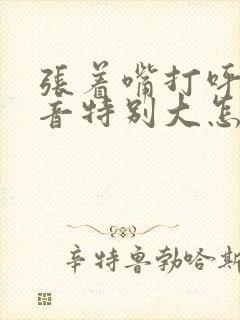 張着嘴打呼
音特别大怎
辛特鲁勃哈斯